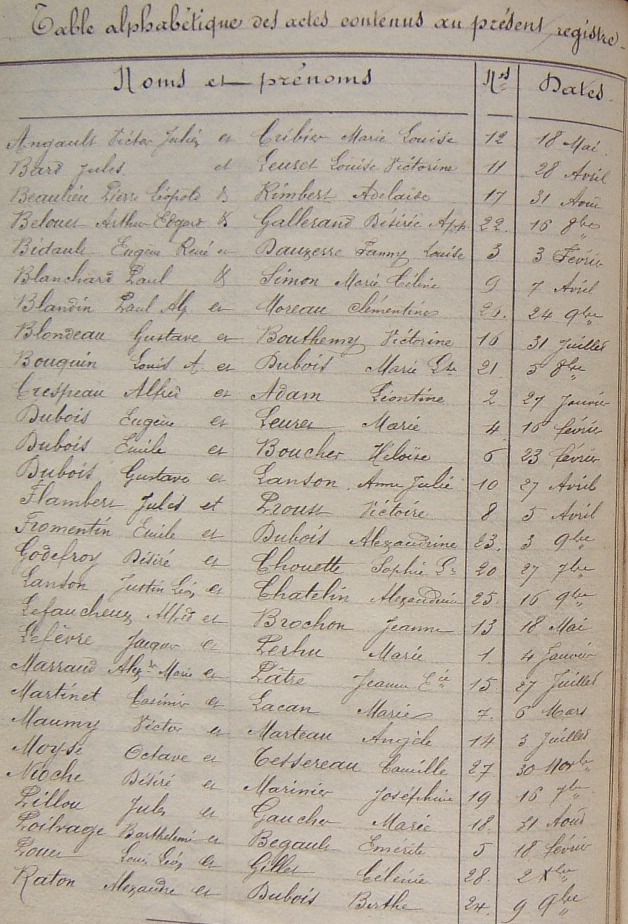 Table alphabétique des actes contenus au présent registre
Noms et prénoms Nos Dates
Angault Victor Jules et Cribier Marie Louise 12 18 Mai
Bard Jules et Leuret Louise Victorine 11 28 Avril
Beaulieu Pierre Léopold & Rimbert Adelaïde 17 31 Août
Belouet Arthur Edgard & Gallerand Désirée App. 22 16 8bre
Bidault Eugène René et Dauzerre Fanny Louise 3 3 Février
Blanchard Paul & Simon Marie Céline 9 7 Avril
Blandin Paul Alx et Moreau Clémentine 26 24 9bre
Blondeau Gustave et Bouthemy Victorine 16 31 Juillet
Bouquin Louis A. et Dubois Marie Lse 21 5 8bre
Crespeau Alfred et Adam Léontine 2 27 Janvier
Dubois Eugène et Leuret Marie 4 16 Février
Dubois Emile et Boucher Héloïse 6 23 Février
Dubois Gustave et Lanson Anne Julie 10 27 Avril
Flambert Jules et Proust Victoire 8 5 Avril
Fromentin Emile et Dubois Alexandrine 23 3 9bre
Godefroy Désiré et Chouette Sophie Lse 20 27 7bre
Lanson Justin Léon et Chatelin Alexandrine 25 16 9bre
Lefaucheux Alfred et Brochon Jeanne 13 18 Mai
Lefèvre Jacques et Perhu Marie 1 4 Janvier
Marraud Alexre Marie et Pâtre Jeanne 15 27 Juillet
Martinet Casimir et Lacan Marie 7 6 Mars
Maumy Victor et Marteau Angèle 14 3 Juillet
Moyse Octave et Tessereau Camille 27 30 Novbre
Nioche Désiré et Marinier Joséphine 19 16 7bre
Pillou Jules et Gaucher Marie 18 31 Août
Poilvage Barthelemi et Begault Emerite 5 18 Février
Louis Léon et Gillet Célénie 28 2 Xbre
Raton Alexandre et Dubois Berthe 24 9 9bre